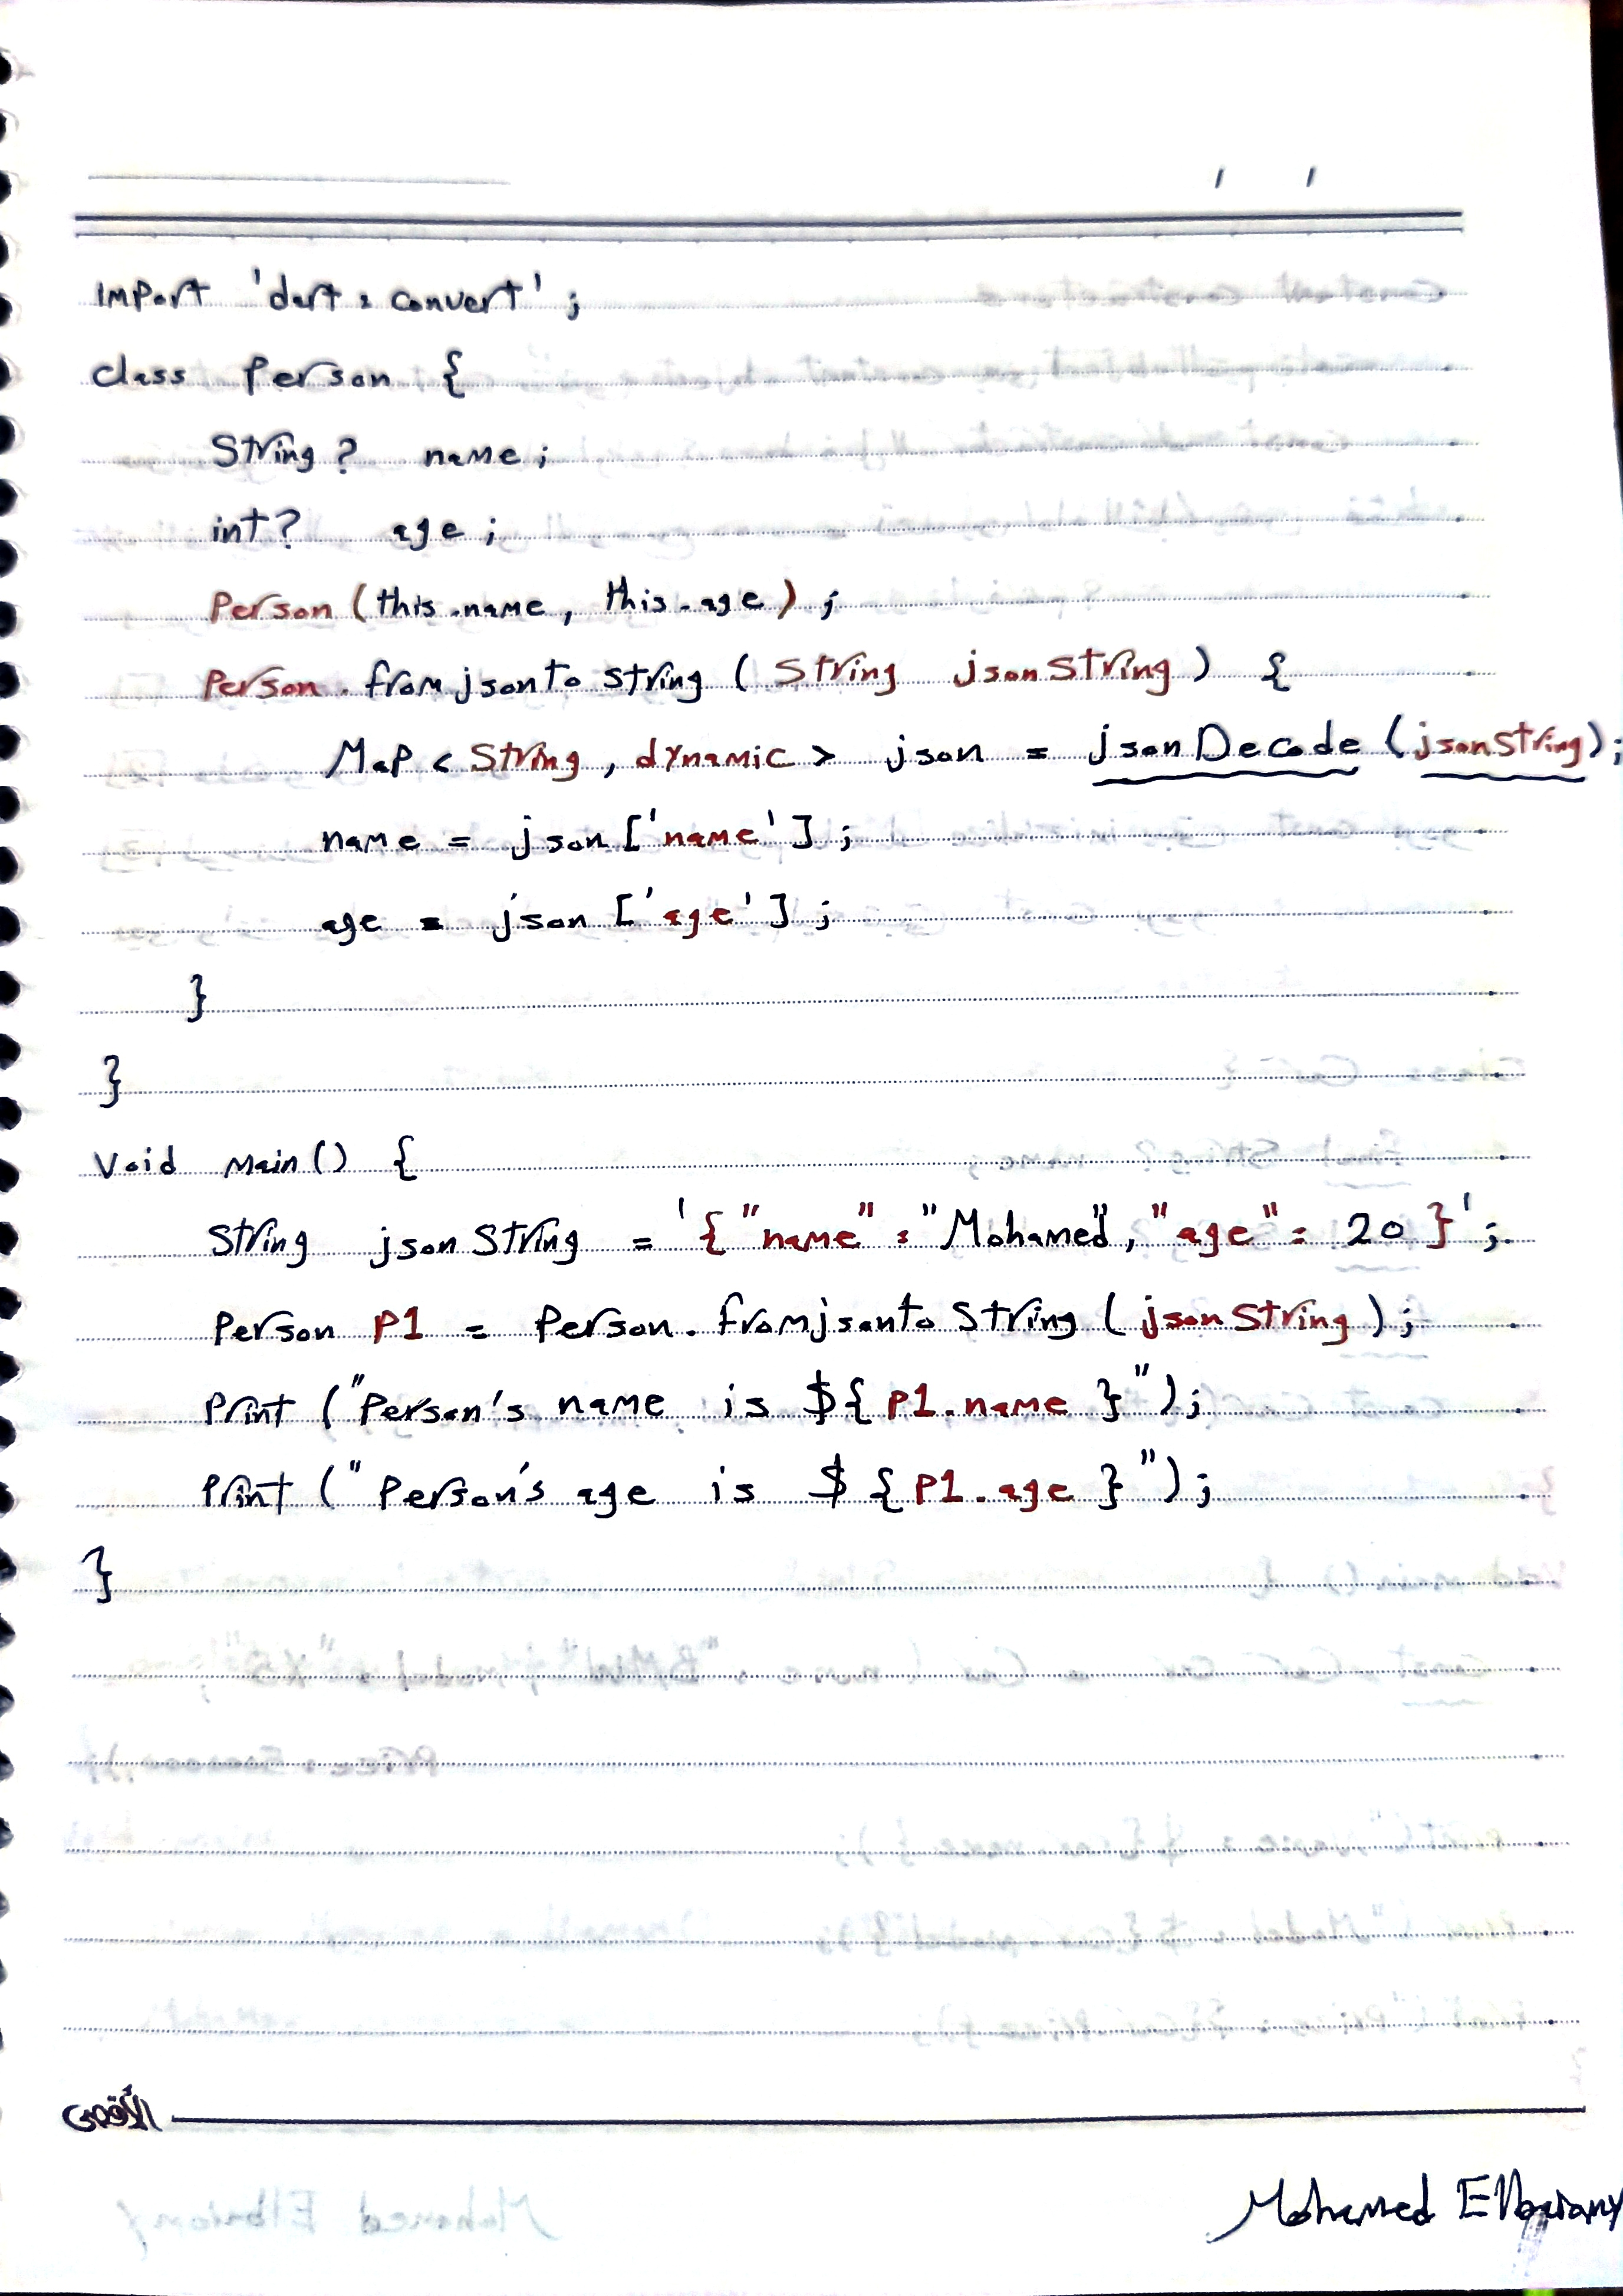 import 'dart:convert';
class Person {
String? name;
int? age;
Person (this.name, this.age);
Person.fromjsontoString (String jsonString) {
Map < String, dynamic > json = jsonDecode (jsonString);
name = json ['name'];
age = json ['age'];
}
}
Void main() {
String jsonString = '{"name":"Mohamed", "age": 20}';
Person P1 = Person.fromjsontoString (jsonString);
Print ("Person's name is ${P1.name}");
Print ("Person's age is ${P1.age}");
}
الأقصى
Mohamed Elbarany